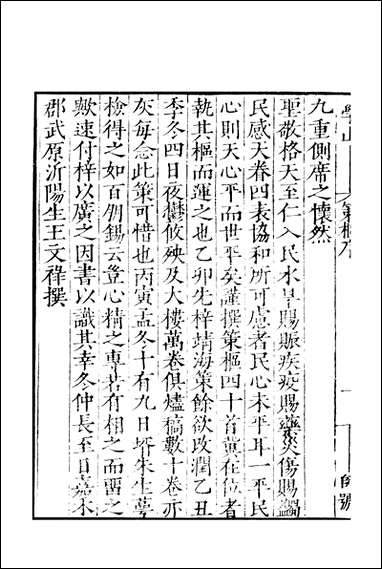 九重側席之懷然
聖敬格天至仁入民水旱賜賑疾疫賜藥災傷賜蠲
民感天眷四表協和所可慮者民心未平耳一平民
心則天心平而世平矣謹撰策樞四十首冀在位者
執其樞而運之也乙卯先梓靖海策餘欲改潤乙丑
季冬四日夜鬱攸殃及大樓萬卷俱燼稿數十卷亦
灰每念此策可惜也丙寅孟冬十有九日壻朱生夢
檢得之如百朋錫云豈心精之專若有相之而畱之
歟速付梓以廣之因書以識其幸冬仲長至日嘉禾
郡武原沂陽生王文祿撰